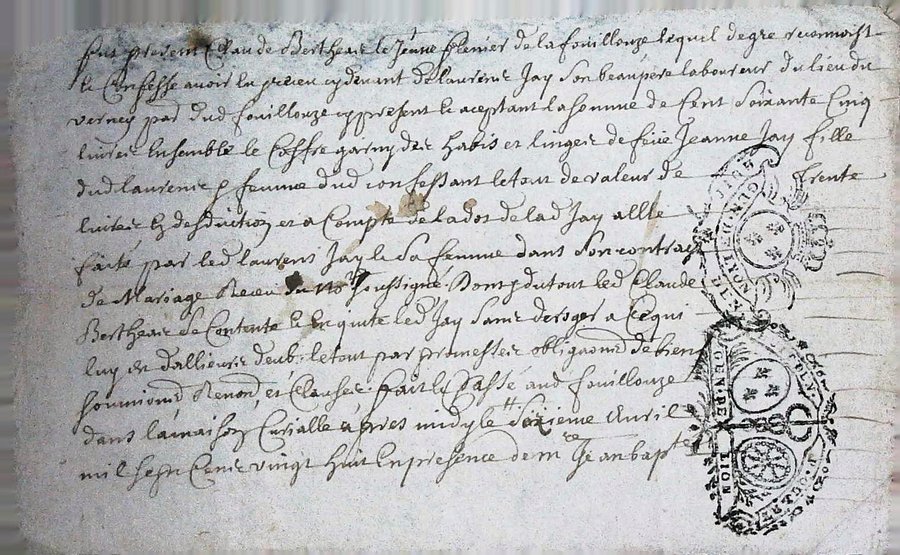 fut present Claude Berthear le Jeune fermier de la fouillouze lequel de gre reconnoist
et Confesse avoir eu & receu cy devant de laurens Jay son beaupere laboureur du lieu du
verney par dud fouillouze cy present et aceptant la somme de Cent Soixante Cinq
livres Ensemble le Coffre garny des habis et linges de feüe Jeanne Jay fille
dud laurens & femme dud confessant le tout de valeur de trente
livres En desduction et a Compte de la dot de lad Jay
faite par led laurent Jay a Sa femme dans Son contrat
de Mariage Receu du No.re Soussigné Dont du tout led Claude
Berthear Se Contente et En quitte led Jay Sans deroger a Ce qui
luy est d'allieurs deub le tout par promesses obligaons de biens
soumions Renon, et Clauses fait et Passé aud fouillouze
dans la maison Curialle apres midy le Sixieme Avril
mil Sept Cents vingt huit En presence de m.re Jean bap.te
GEN. DE
LION